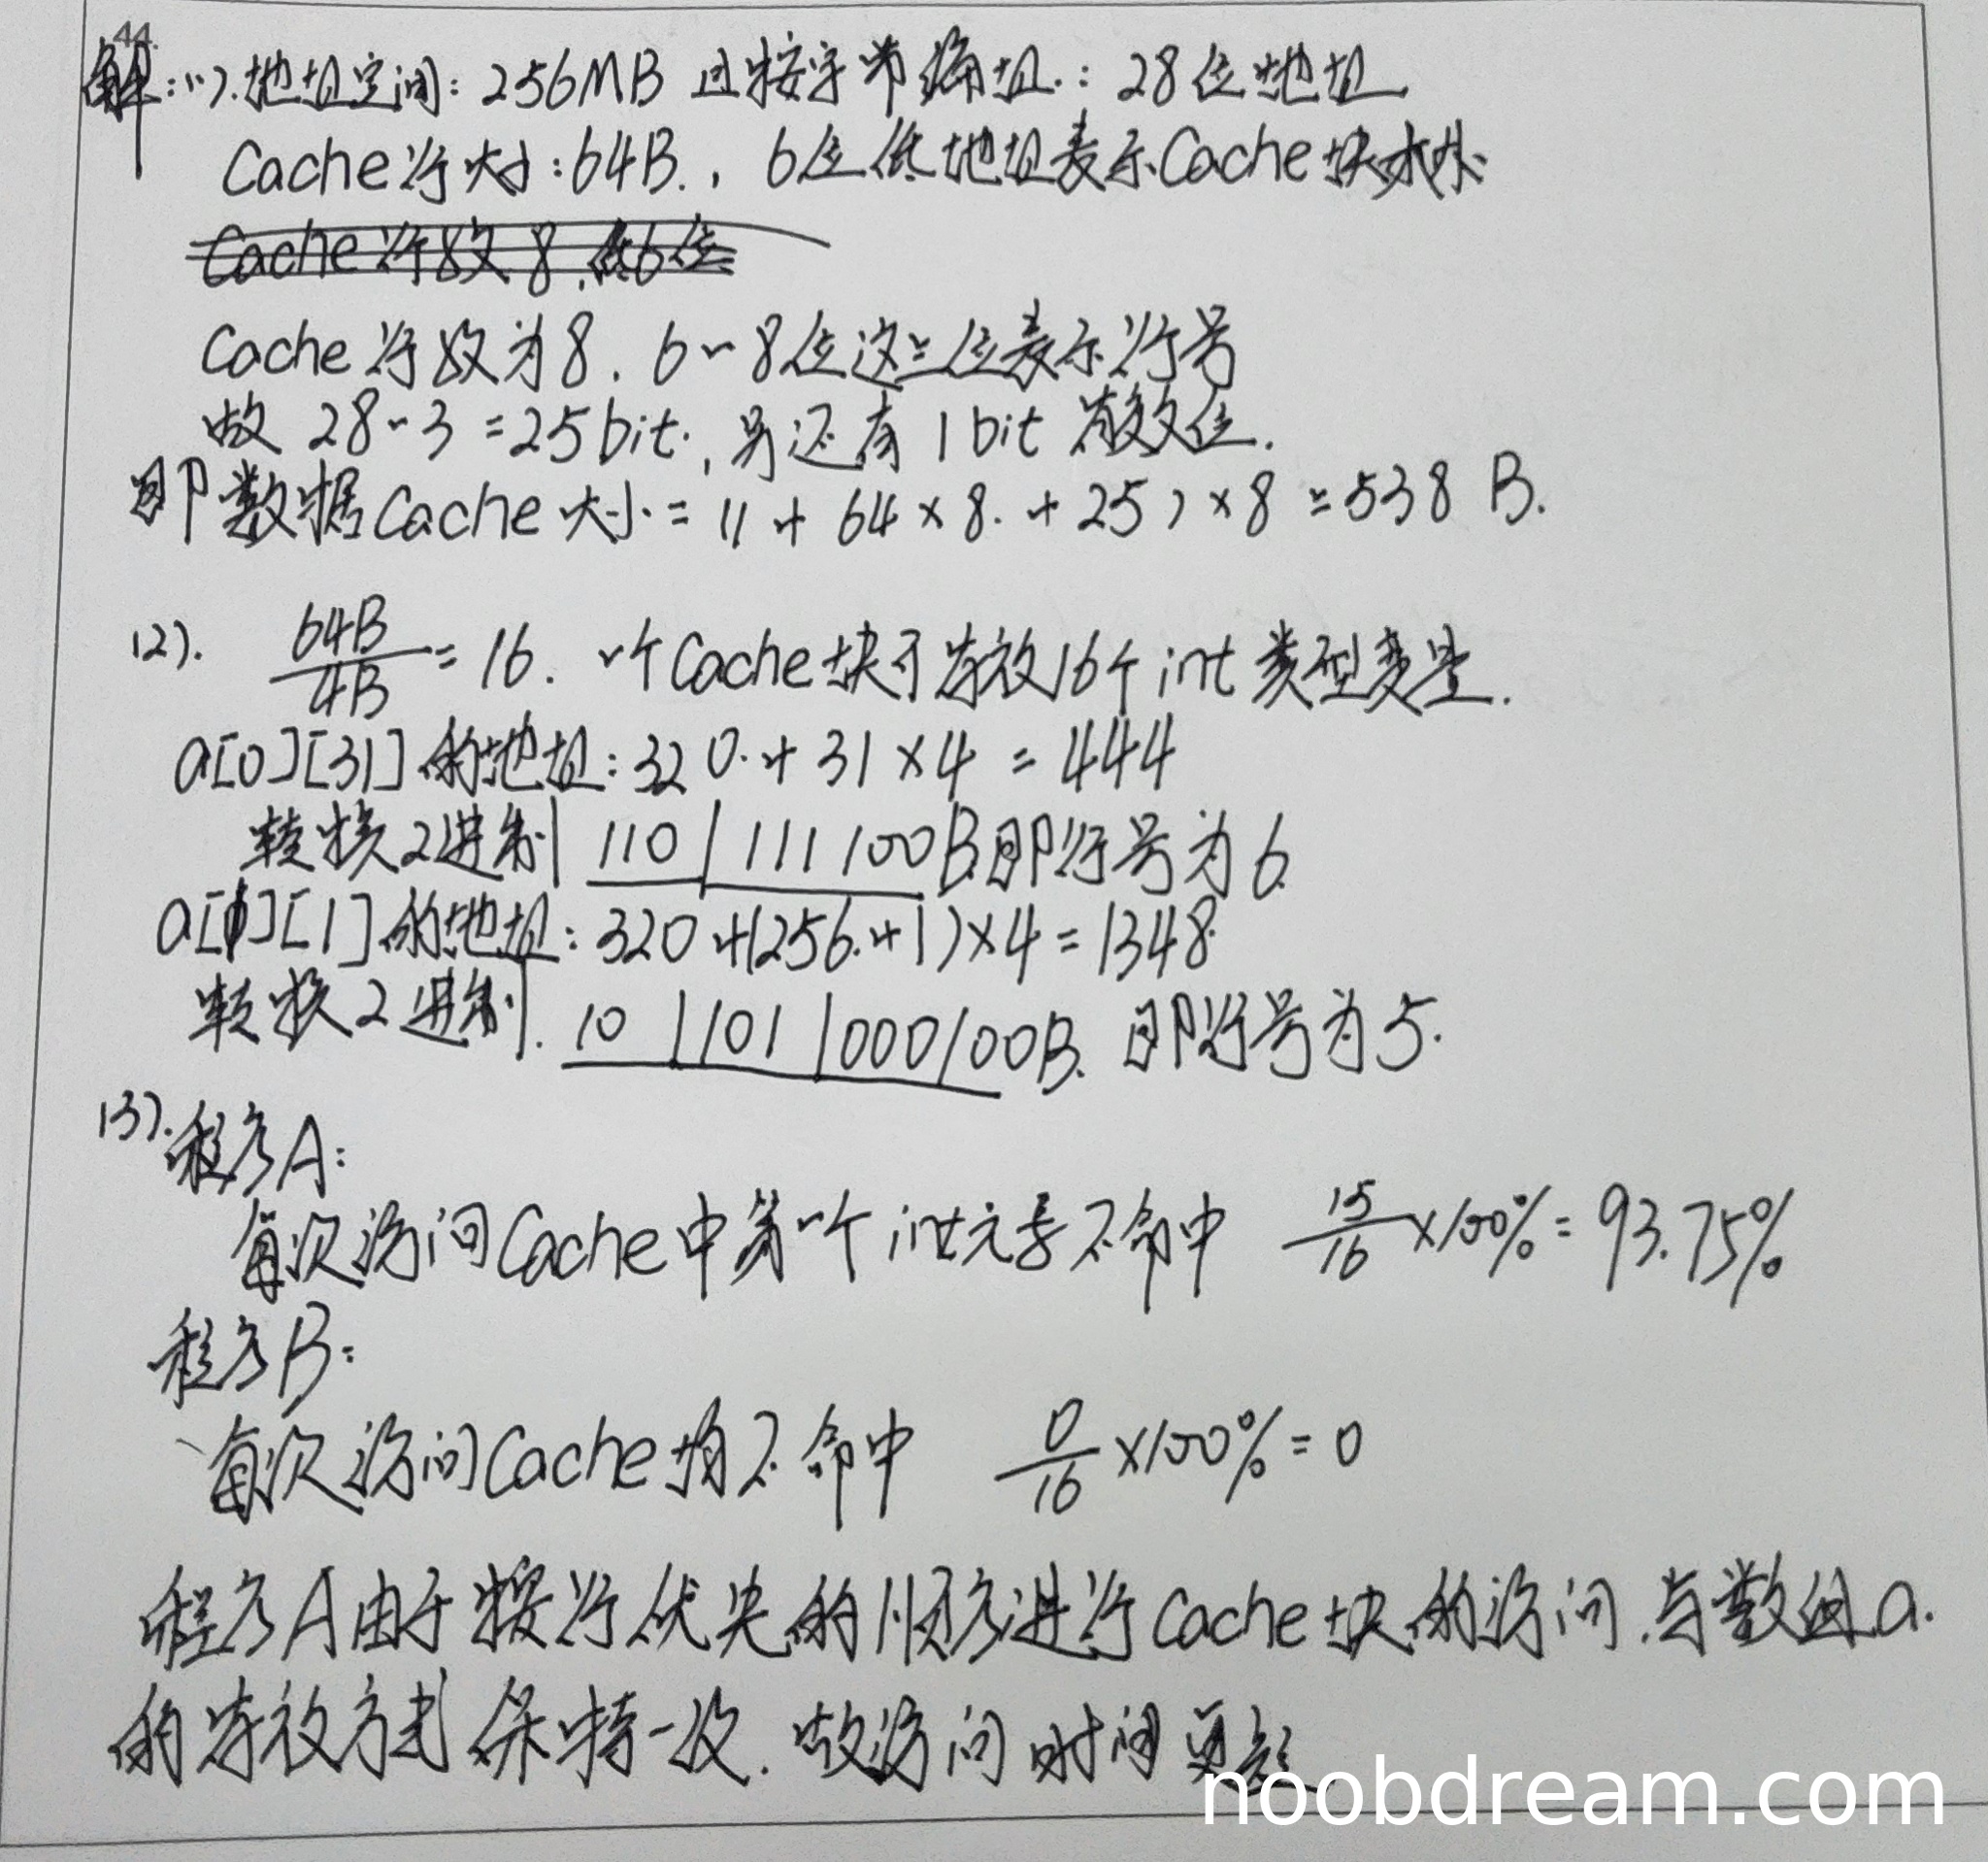 44.
解:(1).地址空间:256MB 且按字节编址.:28位地址
Cache行大小:64B.,6位低地址表示Cache块大小
Cache行数8,低6位
Cache行数为8.6~8位这三位表示行号
故 28-3=25bit.,另还有1bit 有效位.
即数据Cache大小=(1+64×8.+25)×8=538 B.
(2). 64B/4B=16.一个Cache块可存放16个int类型变量.
a[0][31]的地址:320.+31×4=444
转换2进制 110|111100B即行号为6
a[1][1]的地址:320+(256.+1)×4=1348
转换2进制.10|101|000100B.即行号为5.
(3).程序A:
每次访问Cache中第一个int元素不命中 15/16×100%=93.75%
程序B:
每次访问Cache均不命中 0/16×100%=0
程序A由于按行优先的顺序进行Cache块的访问.与数组a.
的存放方式保持一致.故访问时间更短
noobdream.com